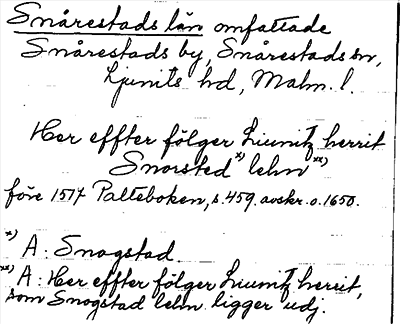 Snårestads län omfattade
Snårestads by, Snårestads sn,
Ljunits hd, Malm. l.
Her effter fölger Liunitz herrit
Snorsted x) lehn xx)
före 1517 Palteboken, s. 459. avskr. o. 1650.
x) A: Snogstad.
xx) A: Her effter fölger Liunitz herrit,
som Snogstad lehn ligger udj.